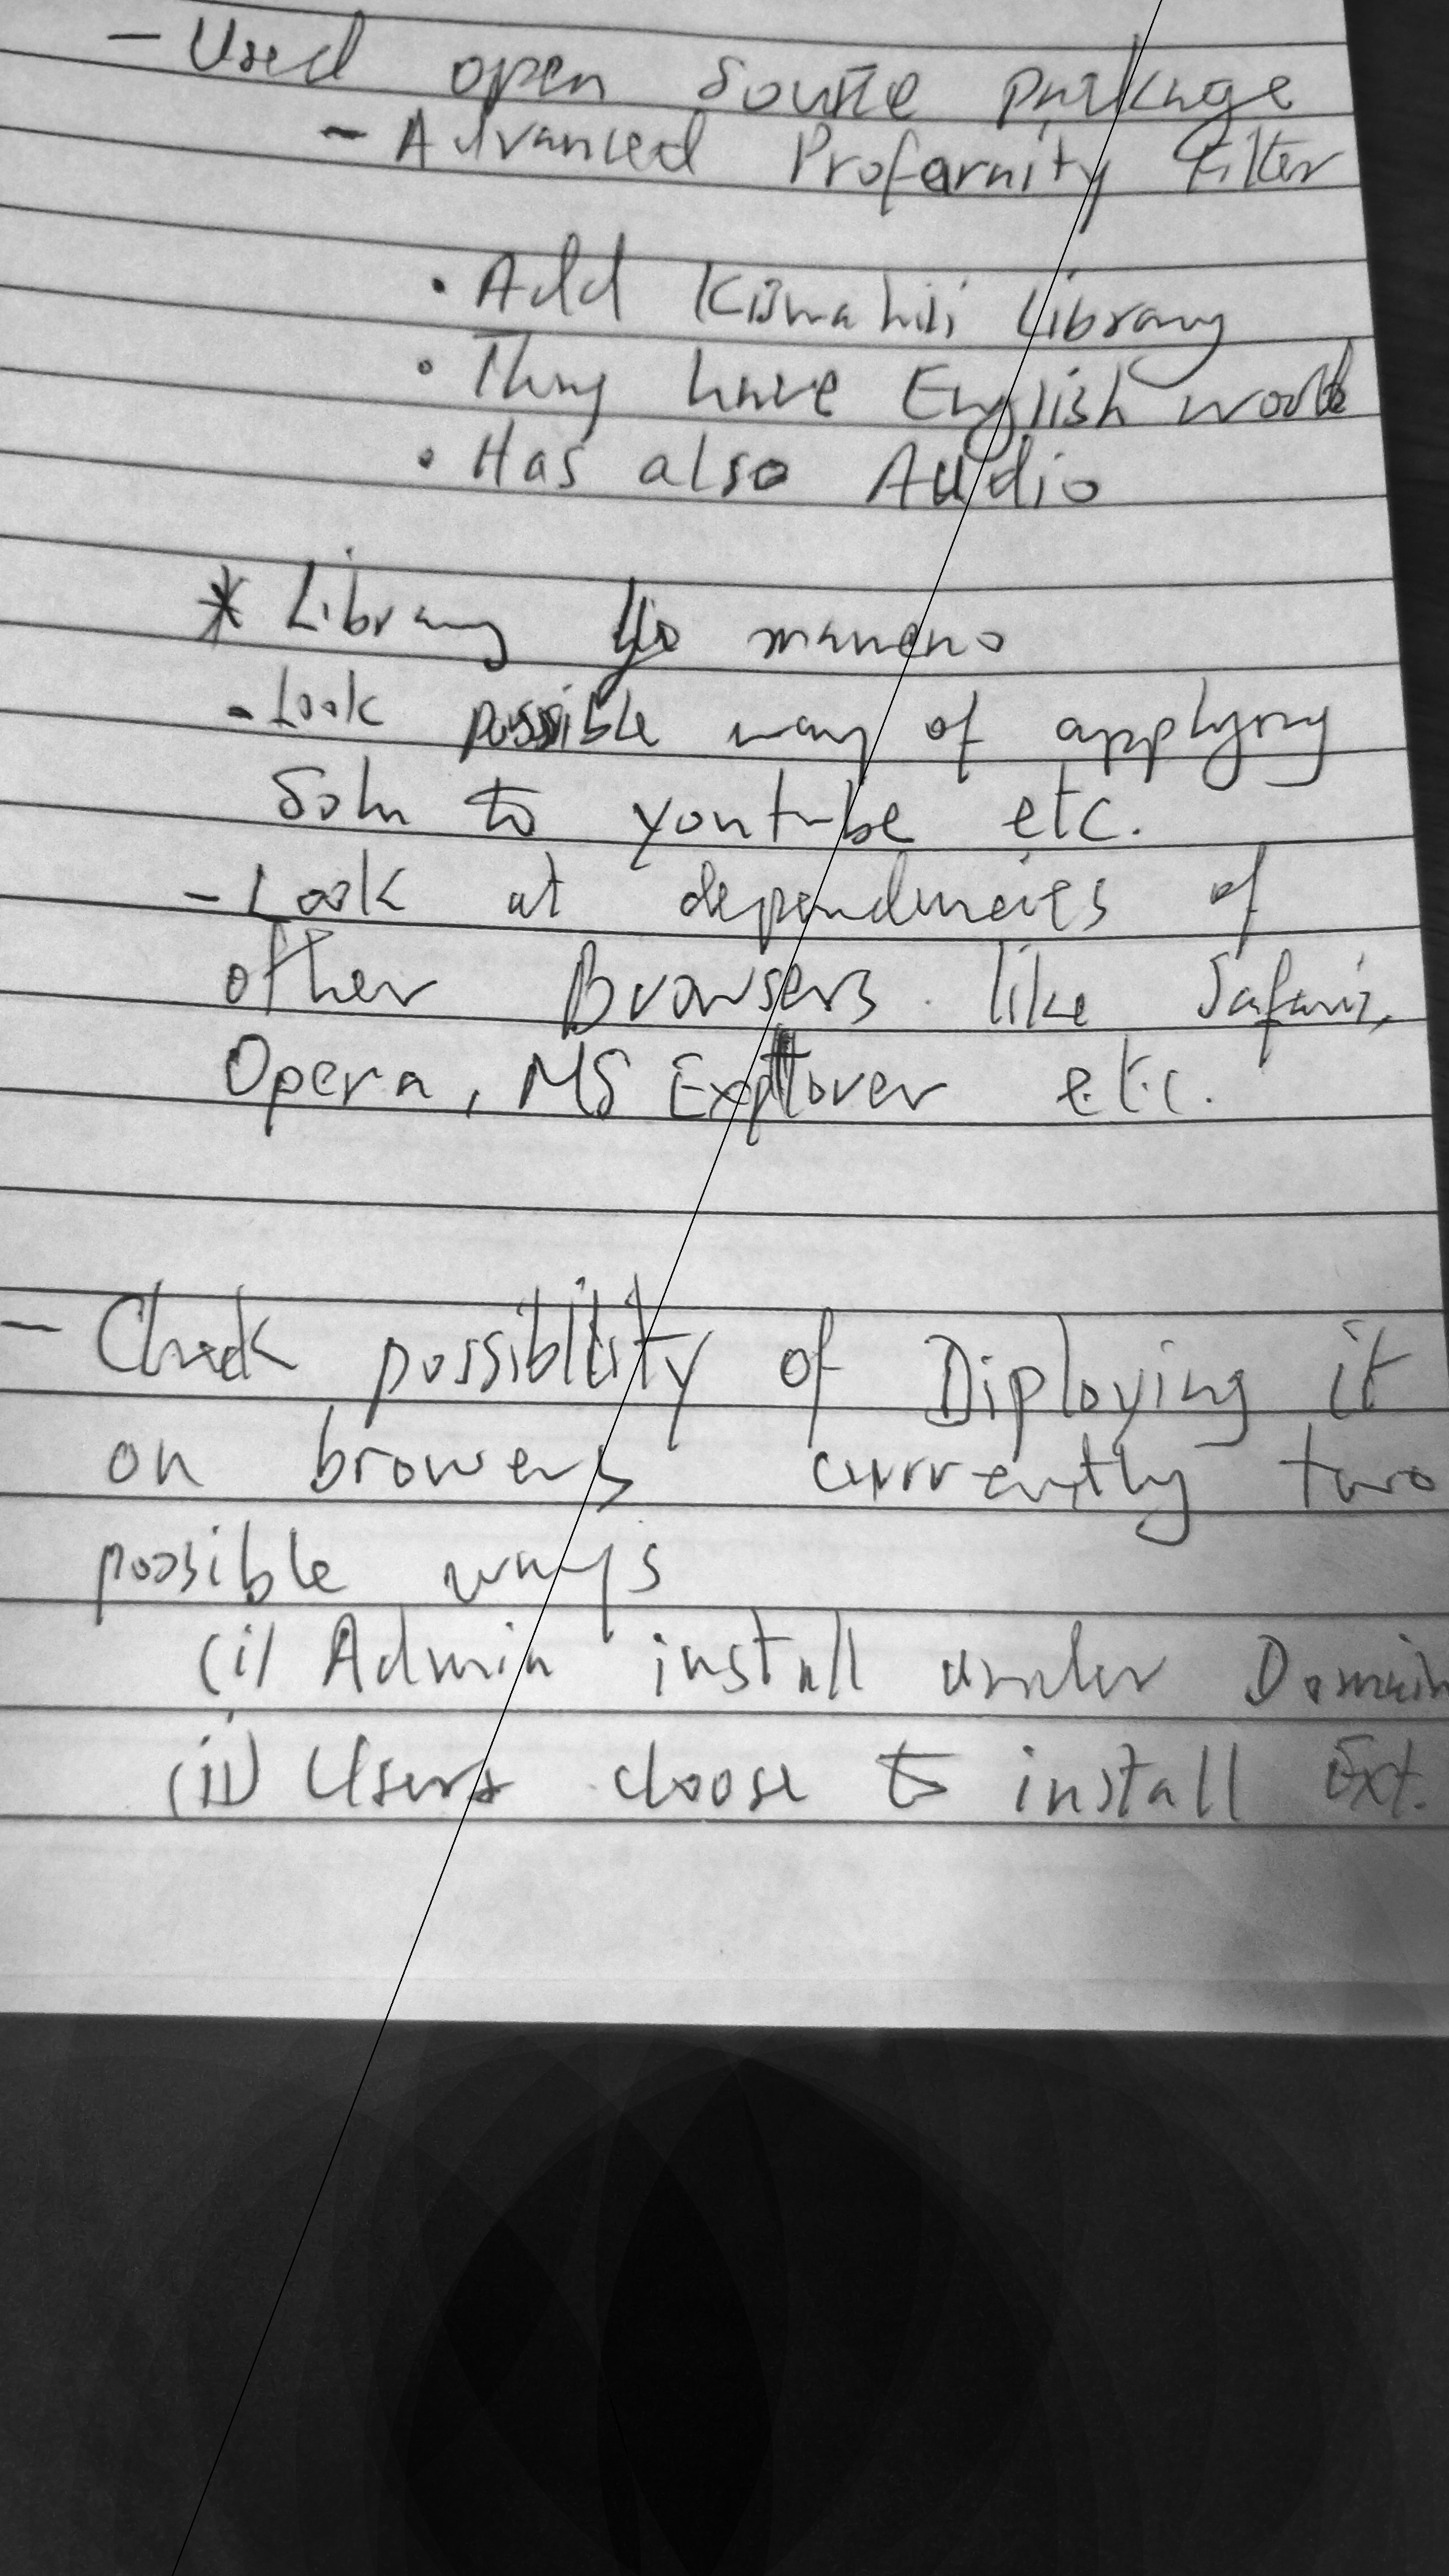 - Used open source package
- Advanced Profarnity Filter
• Add Kiswahili Library
• They have English words
• Has also Audio
* Library ya maneno
- Look possible way of applying
Soln to youtube etc.
- Look at dependencies of
other Browsers like Safari,
Opera, MS Explorer etc.
- Check possiblity of Diploying it
on browers currently two
possible ways
(i) Admin install under Domain
(ii) Users choose to install Ext.